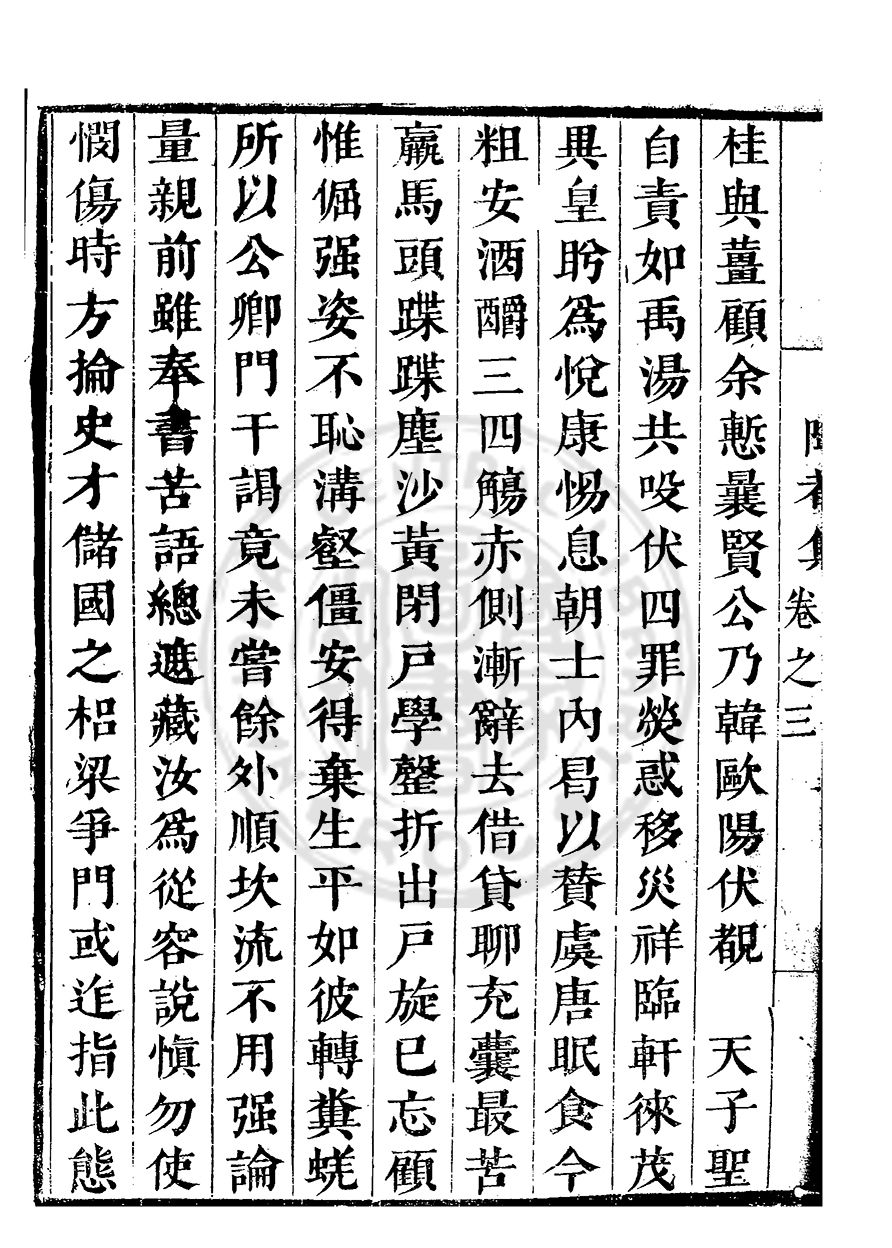 卷之三
桂與薑顧余慙曩賢公乃韓歐陽伏覩　天子聖
自責如禹湯共吺伏四罪熒惑移災祥臨軒徠茂
異皇盻爲悅康惕息朝士內曷以賛虞唐眠食今
粗安酒釂三四觴赤側漸辭去借貸聊充囊最苦
羸馬頭蹀蹀塵沙黃閉戸學謦折出戸旋已忘顧
惟倔强姿不恥溝壑僵安得棄生平如彼轉糞蜣
所以公卿門干謁竟未嘗餘外順坎流不用强論
量親前雖奉書苦語總遮藏汝爲從容說愼勿使
憫傷時方掄史才儲國之梠梁爭門或迮指此態